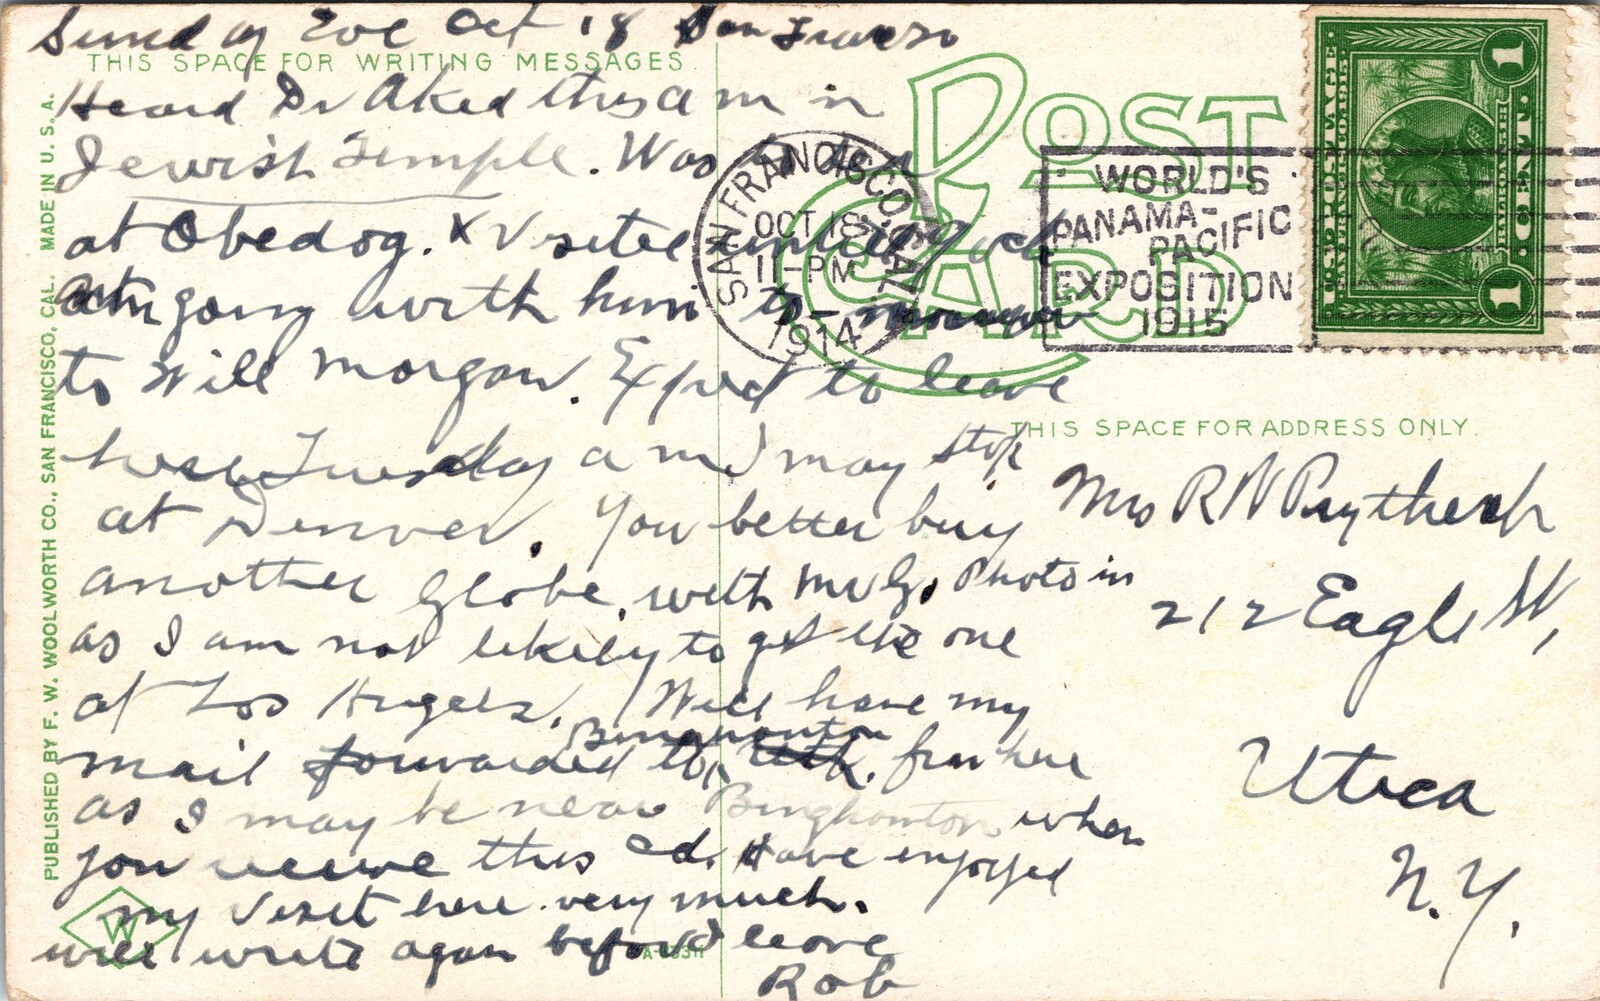 Sunday Eve Oct 18 San Franciso
THIS SPACE FOR WRITING MESSAGES.
Heard Dr Aked this a m in
Jewish Temple. Was
at Obedog. & Visited until 4 oclock
Am going with him to
to Will Morgan. Expect to leave
here Tuesday a m & may stop
at Denver. You better buy
another Globe, with Photo in
as I am not likely to get the one
at Los Angeles. Will have my
mail forwarded to Binghamton from here
as I may be near Binghamton when
you receive this Cd. Have enjoyed
my visit here very much.
will write again before I leave
Rob
PUBLISHED BY F. W. WOOLWORTH CO., SAN FRANCISCO, CAL. MADE IN U. S. A.
W
POST CARD
SAN FRANCISCO, CAL.
OCT 18
11-PM
1914
WORLD'S
PANAMA-
PACIFIC
EXPOSITION
1915
U.S. POSTAGE
1 CENT 1
THIS SPACE FOR ADDRESS ONLY.
Mrs R W Prytherch
212 Eagle St,
Utica
N.Y.